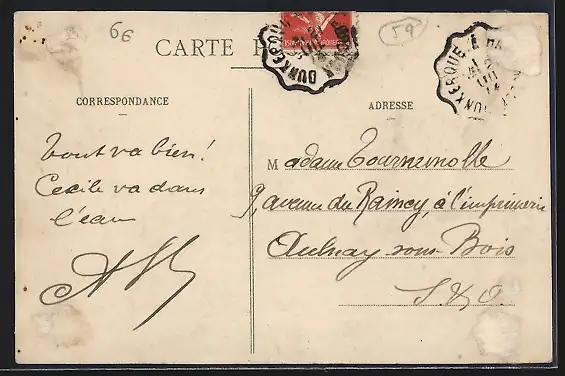 66
59
CARTE P
DUNKERQUE
DUNKERQUE A HA
CORRESPONDANCE
ADRESSE
Tout va bien!
Cecile va dans
l'eau
Madame Tournemolle
9, avenue du Raincy, à l'imprimerie
Aulnay sous-Bois
S. & O.